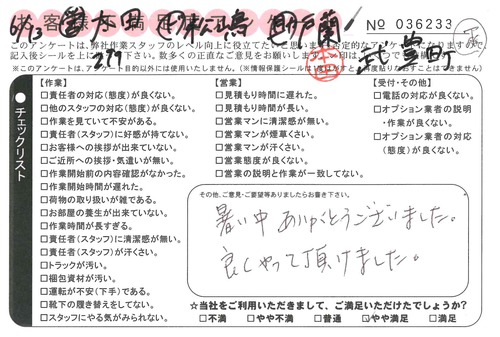 6/13
No 036233
このアンケートは、弊社作業スタッフのレベル向上に役立てたいと思います
記入後シールを上に
数多くの率直なご意見をお願いします
※このアンケートは、アンケート目的以外には使用いたしません。(※情報保護シールは
再度貼りなおすことはできません)
チェックリスト
【作業】
□責任者の対応(態度)が良くない。
□他のスタッフの対応(態度)が良くない。
□作業を見ていて不安がある。
□責任者(スタッフ)に好感が持てない。
□お客様への挨拶が出来ていない。
□ご近所への挨拶・気遣いが無い。
□作業開始前の内容確認がなかった。
□作業開始時間が遅れた。
□荷物の取り扱いが雑である。
□お部屋の養生が出来ていない。
□作業時間が長すぎる。
□責任者(スタッフ)に清潔感が無い。
□責任者(スタッフ)が汗くさい。
□トラックが汚い。
□梱包資材が汚い。
□運転が不安(下手)である。
□靴下の履き替えをしてない。
□スタッフにやる気がみられない。
【営業】
□見積もり時間に遅れた。
□見積もり時間が長い。
□営業マンに清潔感が無い。
□営業マンが煙草くさい。
□営業マンが汗くさい。
□営業態度が良くない。
□営業の説明と作業が一致してない。
【受付・その他】
□電話の対応が良くない。
□オプション業者の説明
・作業が良くない。
□オプション業者の対応
(態度)が良くない。
その他、ご意見・ご要望等ありましたらお書き下さい。
暑い中ありがとうございました。
良くやって頂けました。
☆当社をご利用いただきまして、ご満足いただけたでしょうか?
□不満 □やや不満 □普通 ☑やや満足 □満足